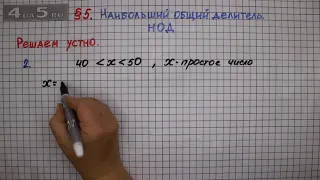 4 fa 5 RU
§5. Наибольший общий делитель.
НОД
Решаем устно.
2. 40 < x < 50 , x - простое число
x =